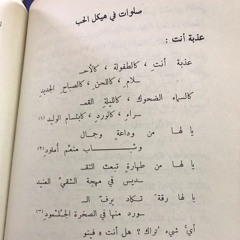 صلوات في هيكل الحب
عذبة أنت :
عذبة أنتِ ، كالطفولة ، كالأحـ
ـلام ، كاللحن ، كالصباح الجديدِ
كالسماء الضحوك ، كالليلة القمـ
ـراء ، كالورد ، كابتسام الوليد (١)
يا لها من وداعة وجمال
وشباب منعّم أملود (٢)
يا لها من طهارةٍ تبعث التقـ
ـديس في مهجة الشقيّ العنيد
يا لها رقةً تكاد يرفّ الـ
ـورد منها في الصخرة الجلمود (٣)
أيّ شيء تراك ؟ هل أنت « فينو